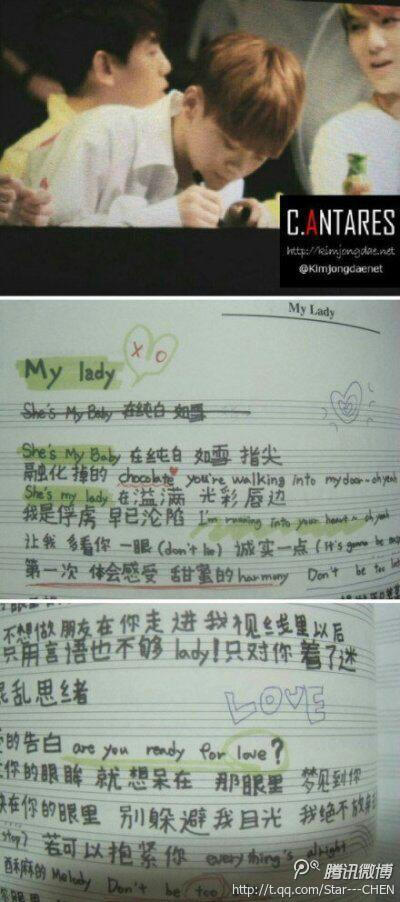 C.ANTARES
http://kimjongdae.net
@Kimjongdaenet
My Lady
My lady
X O
She's My Baby 在纯白 如雪
She's My Baby 在纯白 如雪 指尖
融化掉的 chocolate you're walking into my door~oh yeah
She's my lady 在溢满 光彩唇边
我是俘虏 早已沦陷 I'm running into your heart~oh yeah
让我 多看你 一眼 (don't lie) 诚实一点 (It's gonna be
第一次 体会感受 甜蜜的 harmony Don't be too
不想做朋友在你走进我视线里以后
只用言语也不够 lady! 只对你 着了迷
混乱思绪
LOVE
的告白 are you ready for love?
你的眼眸 就想呆在 那眼里 梦见到你
在你的眼里 别躲避我目光 我绝不放
stop) 若可以抱紧你 everything's alright
的 Melody Don't be too
腾讯微博
http://t.qq.com/Star---CHEN